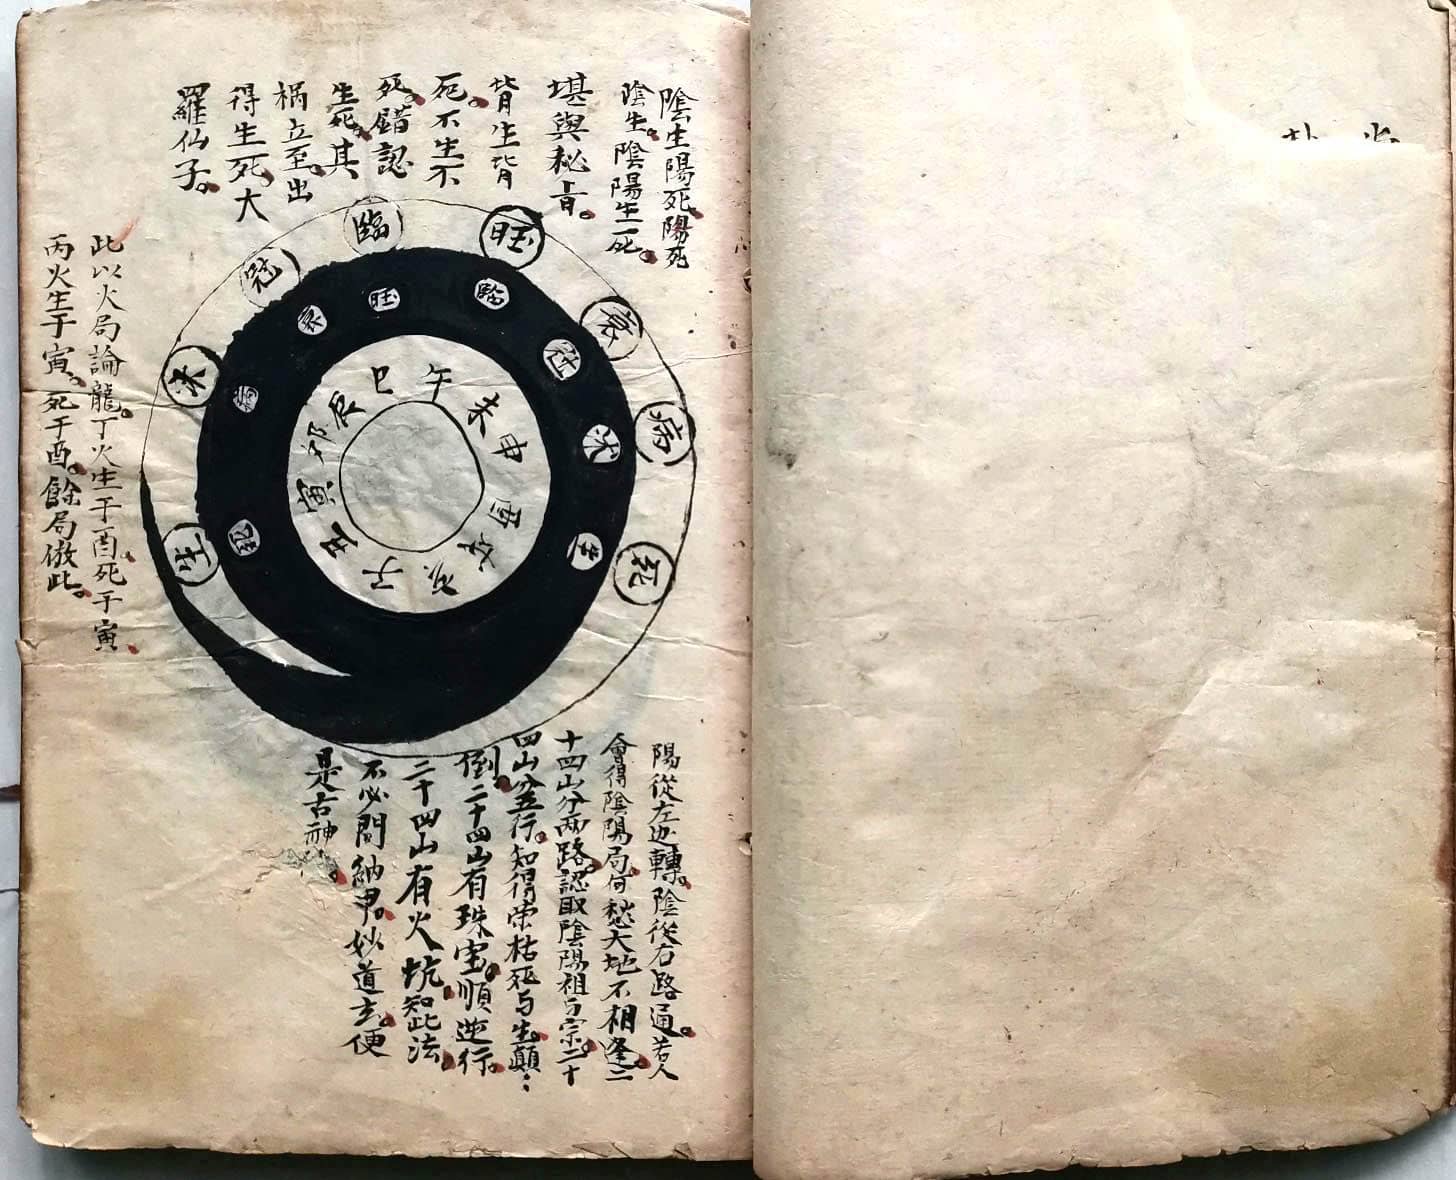 陰生陽死。陽死
陰生。陰陽生死。
堪輿秘旨。
皆生皆
死。不生不
死。錯認
生死。其
祸立至。出
得生死。大
羅仙子。
旺
臨
冠
沐
生
衰
病
死
臨
旺
衰
病
死
冠
沐
生
午
未
申
酉
戌
亥
子
丑
寅
卯
辰
巳
此以火局論龍。丁火生于酉。死于寅。
丙火生于寅。死于酉。餘局倣此。
陽從左边轉。陰從右路通。若人
會得陰陽局。何愁大地不相逢。二
十四山分两路。認取陰陽祖与宗。二十
四山笠行。知得荣枯死与生。顛：
倒。二十四山有珠宝。順逆行。
二十四山有火坑。知此法。
不必問納甲。妙道玄。便
是古神